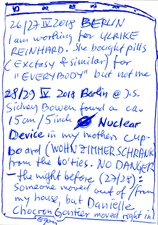 26/27 IV 2018 BERLIN
I am working for ULRIKE
REINHARD. She bought pills
(Exctasy & similar) for
"EVERYBODY" but not me
28/29 IV 2018 Berlin @ J.S.
Sidney Bowen found a ca.
15cm / 5 inch Nuclear
Device in my mother cup-
board (WOHNZIMMERSCHRANK)
from the 60'ties. NO DANGER
- the night before (27/28)
Someone moved out of / from
my house, but Danielle
Chocron Gontier moved right in